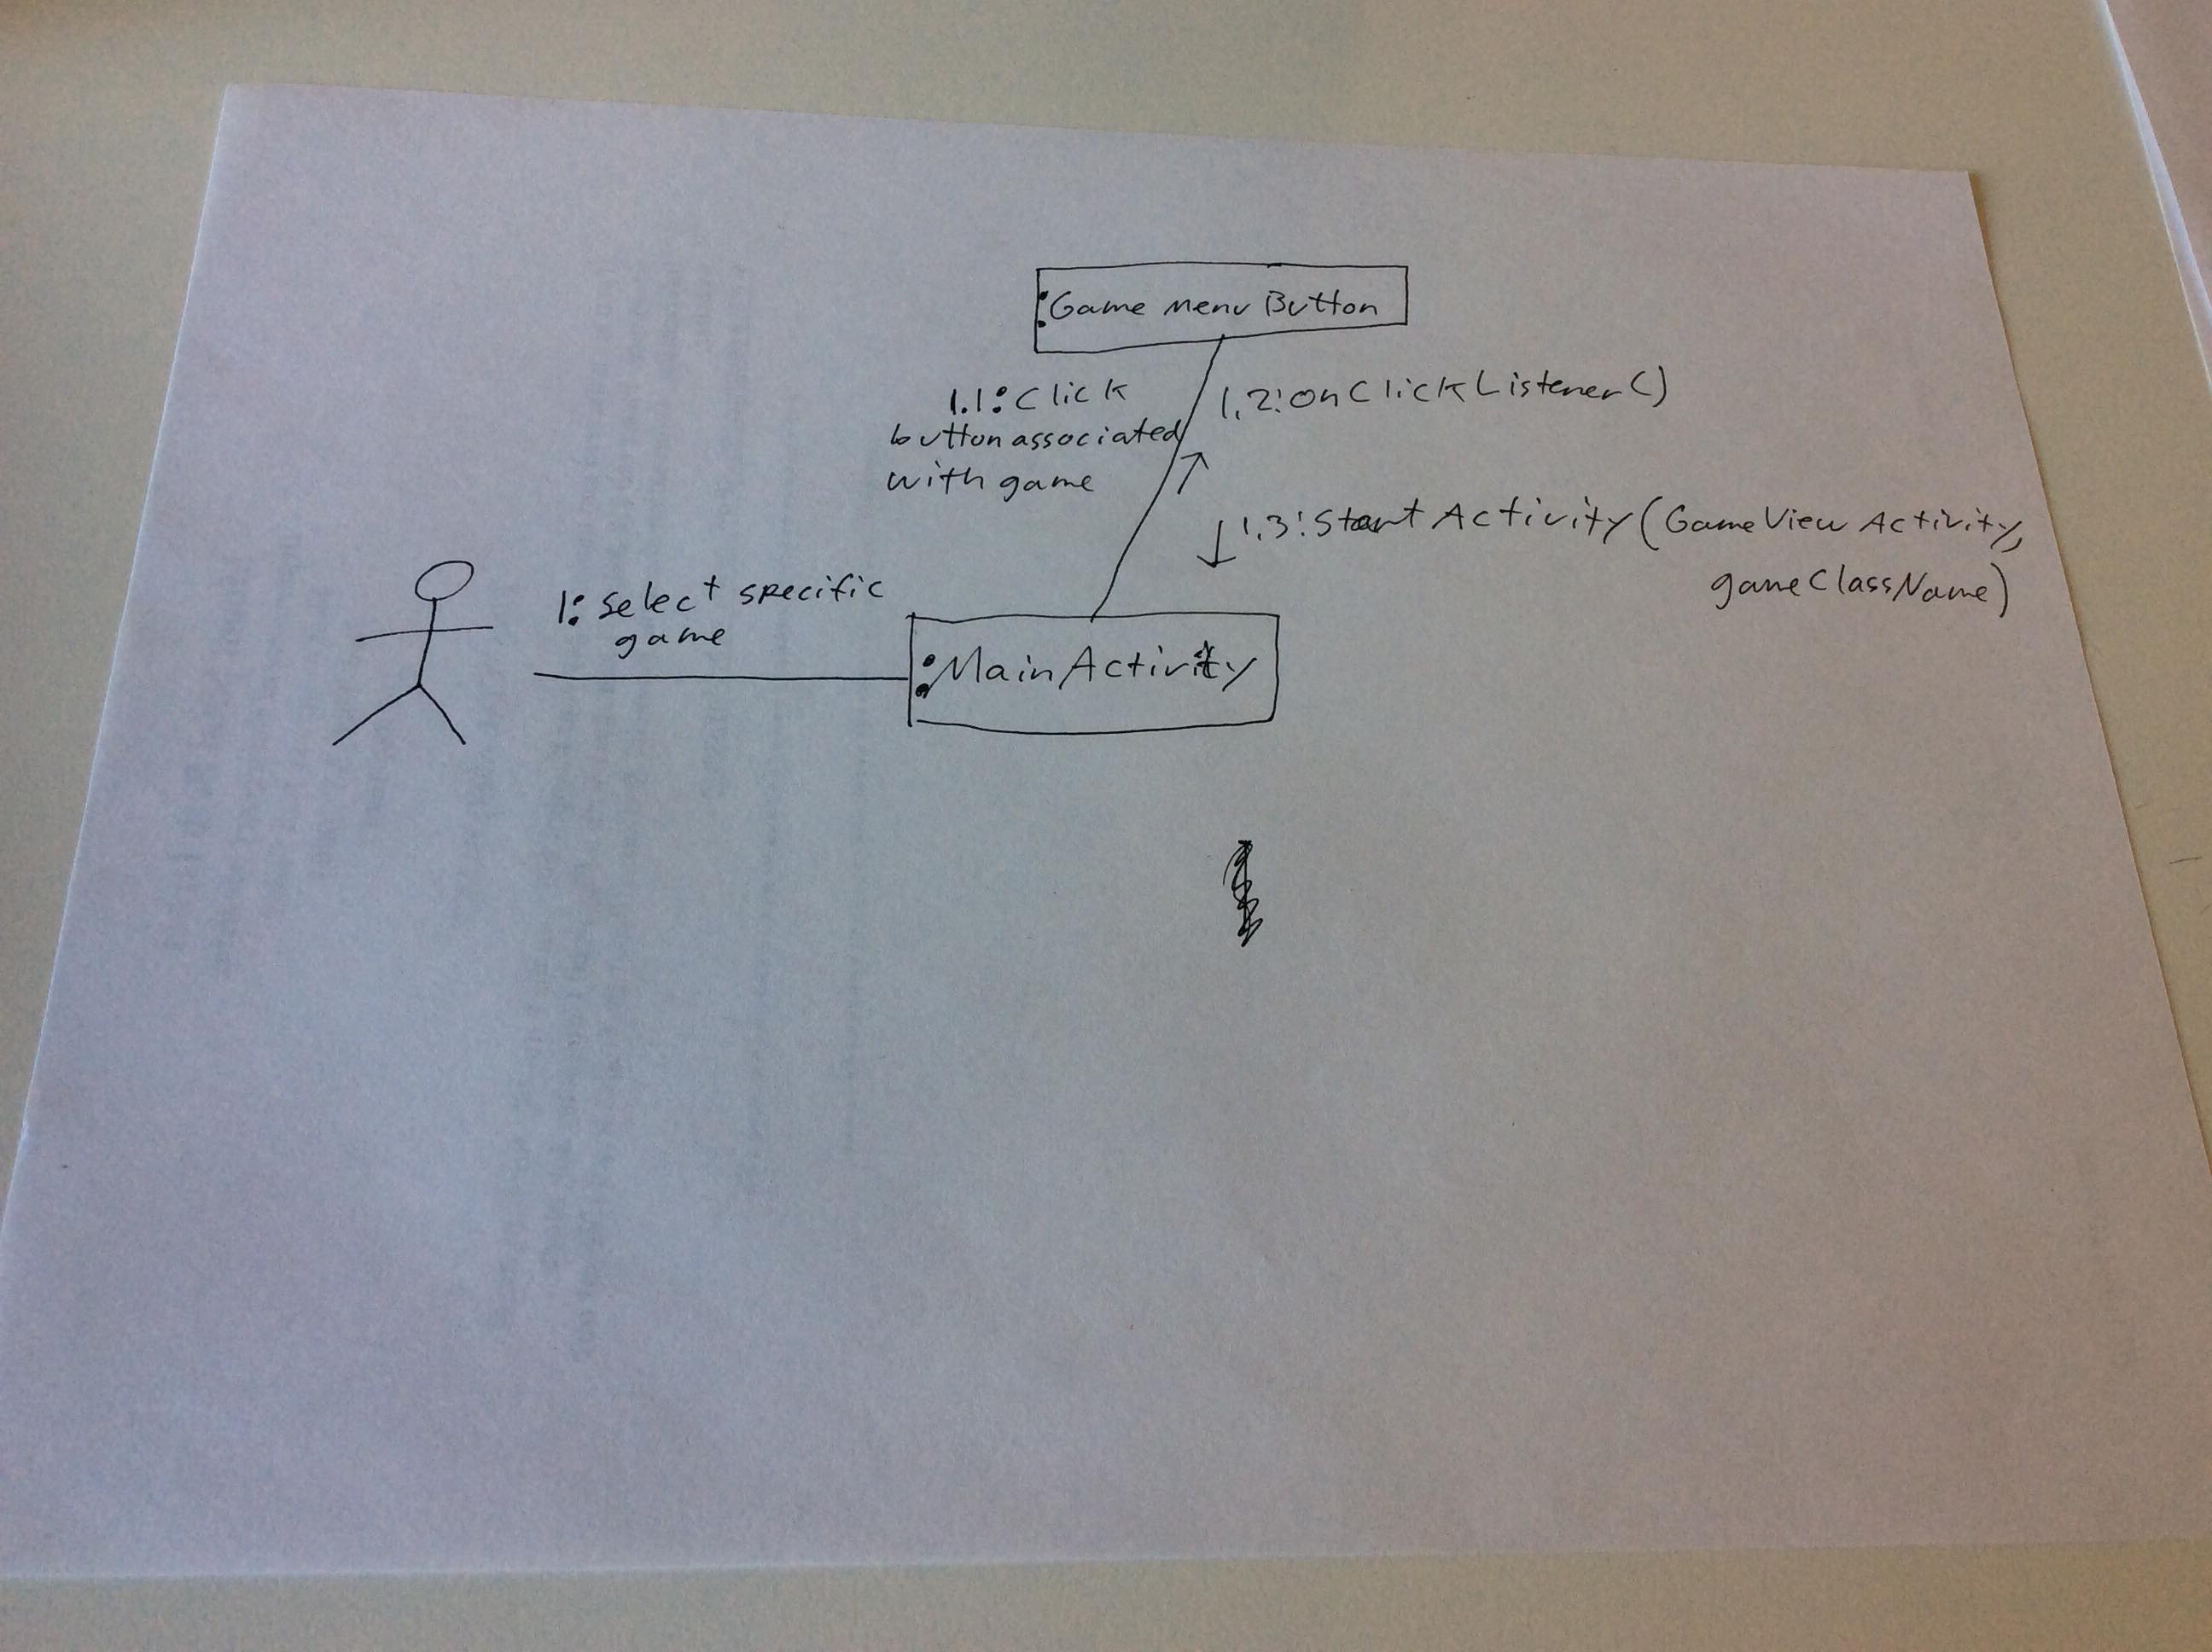 :Game Menu Button
1.1: Click
button associated
with game
1.2: onClickListener()
1.3: Start Activity (GameView Activity,
gameClassName)
1: select specific
game
:MainActivity